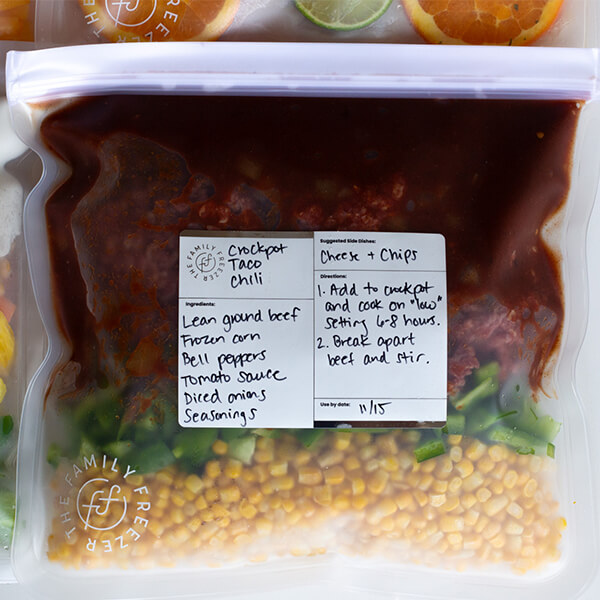 THE FAMILY FREEZER
ff
Crockpot
Taco
Chili
Ingredients:
Lean ground beef
Frozen corn
Bell peppers
Tomato sauce
Diced onions
Seasonings
Suggested Side Dishes:
Cheese + Chips
Directions:
1. Add to crockpot
and cook on "low"
setting 6-8 hours.
2. Break apart
beef and stir.
Use by date: 11/15
THE FAMILY FREEZER
ff